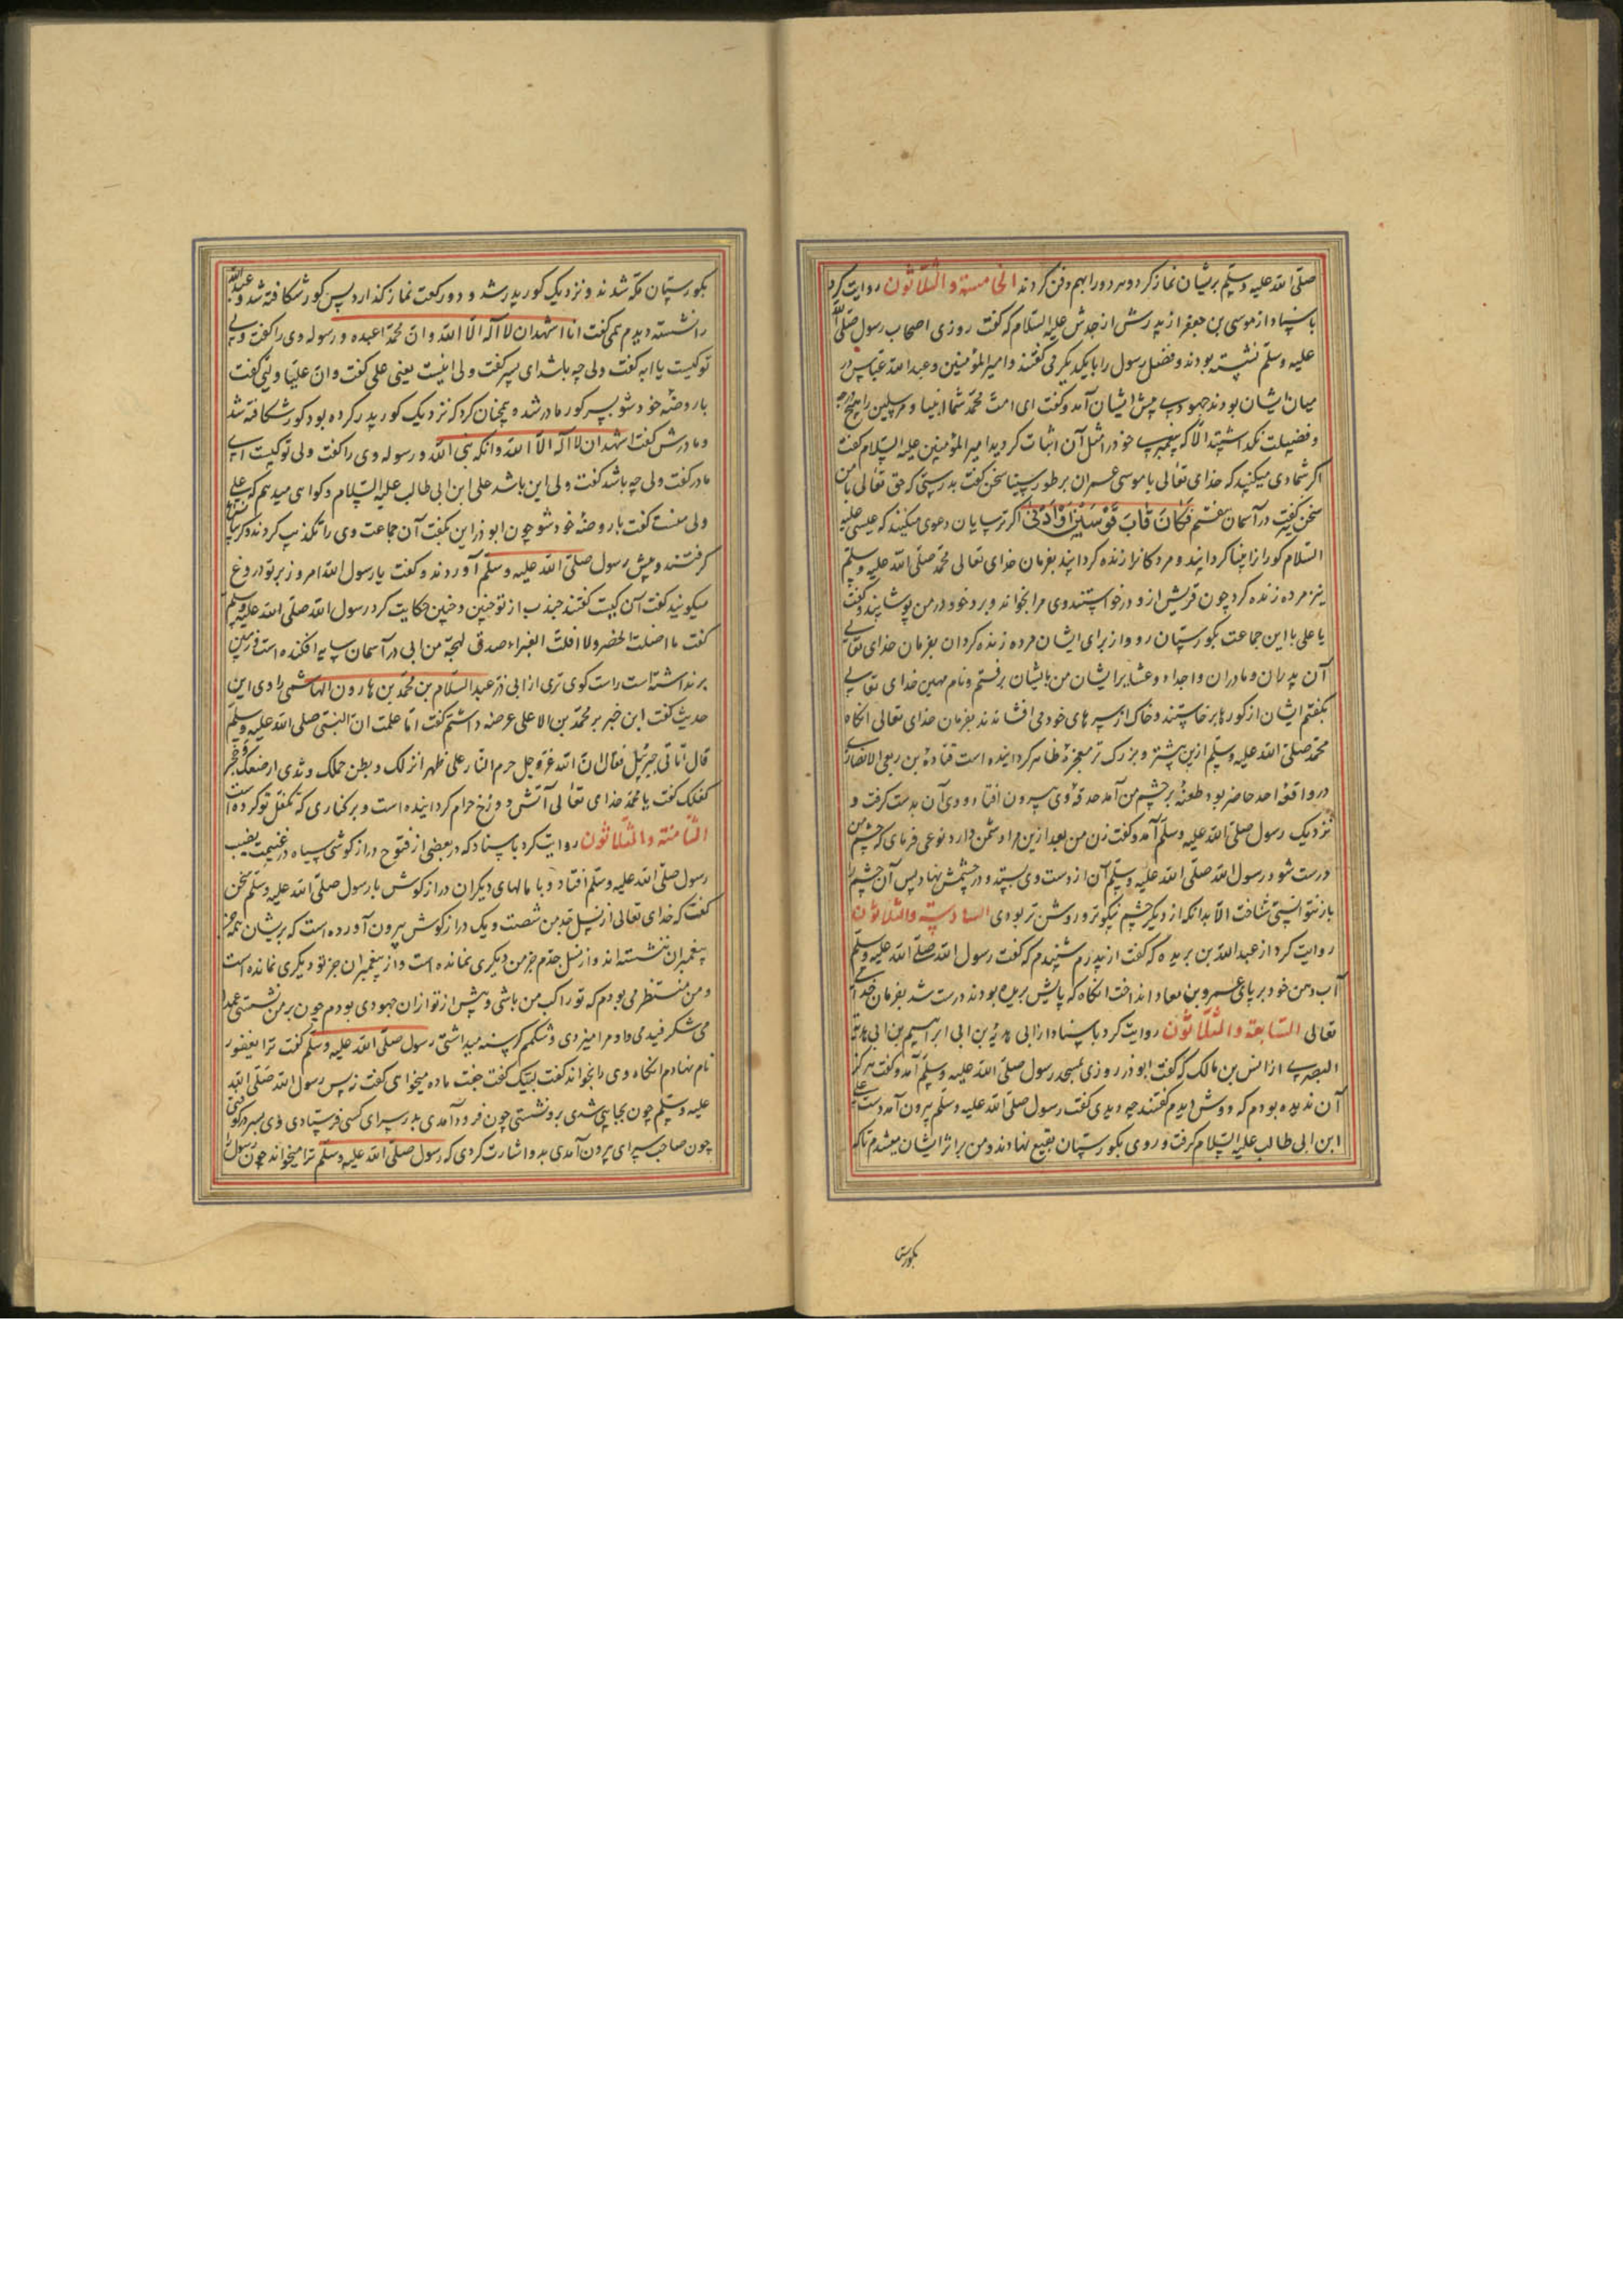 صلّی الله علیه وسلّم بریشان نماز کرد و هر دو را بهم دفن کردند الخامسة والثلاثون روایت کرد
باسناد از موسی بن جعفر از پدرش از جدش علیه السلام که گفت روزی اصحاب رسول صلّی الله
علیه وسلّم نشسته بودند و فضل رسول را بایکدیگر می گفتند و امیرالمؤمنین و عبدالله عباس در
میان ایشان بودند جهودی پیش ایشان آمد و گفت ای امت محمد شما انبیا و مرسلین را هیچ درجه
و فضیلت نگذاشتید الا که پیغمبر خود را مثل آن اثبات کردید امیرالمؤمنین علیه السلام گفت
اگر شما دعوی میکنید که خدای تعالی با موسی عمران بر طور سینا سخن گفت بدرستی که حق تعالی با من
سخن گفت در آسمان هفتم فَکَانَ قَابَ قَوْسَیْنِ اَوْ اَدْنیٰ اگر ترسایان دعوی میکنند که عیسی علیه
السلام کور را بینا گردانید و مردگانرا زنده گردانید بفرمان خدای تعالی محمد صلّی الله علیه وسلّم
نیز مرده زنده کرد چون قریش ازو درخواستند وی مرا بخواند و برد خود در من پوشانید و گفت
یا علی با این جماعت بگورستان رو و از برای ایشان مرده زنده کردان بفرمان خدای تعالی
آن پدران و مادران و اجداد و عشایر ایشان من باایشان برفتم و نام مهین خدای تعالی
بگفتم ایشان از گورها برخاستند و خاک از سرهای خود می افشاندند بفرمان خدای تعالی انکاه
محمد صلّی الله علیه وسلّم ازین بیشتر و بزرگ تر معجزه ظاهر کردانیده است قتادة بن ربعی الانصاری
در واقعه احد حاضر بود طعنه بر چشم من آمد حدقه وی بیرون افتاد وی آن بدست گرفت و
نزدیک رسول صلّی الله علیه وسلّم آمد و گفت زن من بعد ازین مرا دشمن دارد نوعی فرمای که چشم من
درست شود رسول الله صلّی الله علیه وسلّم آن از دست وی بستد و در چشمش نهاد پس آن چشم را
باز نتوانستی شناخت الا بدانکه از دیگر چشم نیکوتر و روشن تر بودی السادسة والثلاثون
روایت کرد از عبدالله بن بریده که گفت از پدرم شنیدم که گفت رسول الله صلّی الله علیه وسلّم
آب دهن خود بر پای عمرو بن معاد انداخت انکاه که پایش بریده بودند درست شد بفرمان خدای
تعالی السابعة والثلاثون روایت کرد باسناد از ابی هدبة بن ابی ابراهیم بن ابی هدبة
البصری از انس بن مالک که گفت ابوذر روزی بمسجد رسول صلّی الله علیه وسلّم آمد و گفت هرگز
آن ندیده بودم که دوش دیدم گفتند چه دیدی گفت رسول صلّی الله علیه وسلّم بیرون آمد دست علی
ابن ابی طالب علیه السلام گرفت و روی بگورستان بقیع نهادند و من بر اثر ایشان میشدم تا که
بگورستان
بگورستان مکه شدند و نزدیک کور پدر شد و دو رکعت نماز گذارد پس کور شکافته شد و عبدالله
را نشسته دیدم همی گفت انا اشهد ان لا اله الا الله وان محمدا عبده و رسوله وی را گفت ولی
تو کیست یا ابه گفت ولی چه باشد ای پسر گفت ولی اینست یعنی علی گفت وان علیا ولیی گفت
با روضه خود شو پس کور مادر شد و همچنان کرد که نزدیک کور پدر کرده بود کور شکافته شد
و مادرش گفت اشهد ان لا اله الا الله وانک نبی الله و رسوله وی را گفت ولی تو کیست ای
مادر گفت ولی چه باشد گفت ولی این باشد علی ابن ابی طالب علیه السلام و کواهی میدهم که علی
ولی منست گفت با روضه خود شو چون ابوذر این بگفت آن جماعت وی را تکذیب کردند و گریبانش
گرفتند و پیش رسول صلّی الله علیه وسلّم آوردند و گفت یا رسول الله امروز بر تو دروغ
میگویند گفت آن کیست گفتند جندب از تو چنین و چنین حکایت کرد رسول الله صلّی الله علیه وسلّم
گفت ما اضلت الخضر ولا اقلت الغبراء صدق لهجة من ابی ذر آسمان سایه افکنده است و زمین
برنداشته است راست گوی تری از ابی ذر عبدالسلام بن محمد بن هارون الهاشمی راوی این
حدیث گفت این خبر بر محمد بن الاعلی عرضه داشتم گفت اما علمت ان النبی صلّی الله علیه وسلّم
قال اتانی جبرئیل فقال ان الله عز و جل حرم النار علی ظهر انزلک و بطن حملک و ثدی ارضعک و حجر
کفلک گفت یا محمد خدای تعالی آتش دوزخ حرام کردانیده است و بر کناری که تکفل تو کرده است
الثامنة والثلاثون روایت کرد باسناد که در بعضی از فتوح دراز گوشی سیاه در غنیمت نصیب
رسول صلّی الله علیه وسلّم افتاد و با مالهای دیگران درازگوش با رسول صلّی الله علیه وسلّم سخن
گفت که خدای تعالی از نسل جد من شصت و یک درازگوش بیرون آورده است که بریشان همه جز
پیغمبران ننشسته اند و از نسل جدم جز من دیگری نمانده است و از پیغمبران جز تو دیگری نمانده است
و من منتظر می بودم که تو راکب من باشی و پیش از تو ازان جهودی بودم چون بر من نشستی عمدا
می شکرفیدمی او مرا میزدی و شکمم گرسنه میداشتی رسول صلّی الله علیه وسلّم گفت ترا یعفور
نام نهادم انکاه وی را بخواند گفت لبیک گفت جفت ماده میخواهی گفت نه پس رسول الله صلّی الله
علیه وسلّم چون بجایی شدی برو نشستی چون فرود آمدی بدر سرای کسی فرستادی وی بسر در کوفتی
چون صاحب سرای بیرون آمدی بدو اشارت کردی که رسول صلّی الله علیه وسلّم ترا میخواند چون رسول